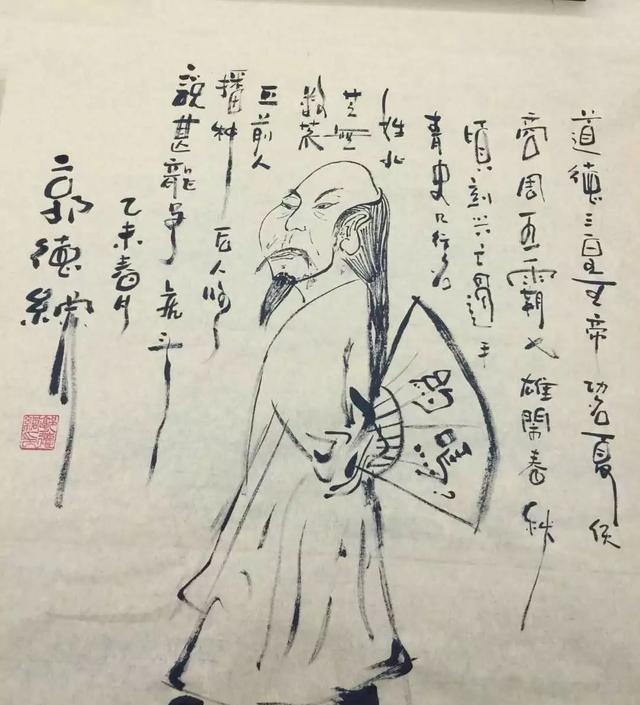 道德三皇五帝功名夏侯
商周五霸七雄閙春秋
頃刻兴亡過手
青史几行名
姓北
芒無
數荒
丘前人
播种后人收
説甚龍争虎斗
乙未春月
郭德綱